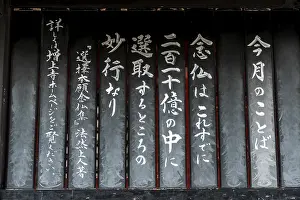 今月のことば
念仏はこれすでに
二百一十億の中に
選取するところの
妙行なり
『選択本願念仏集』法然上人著
詳しくは増上寺ホームページをご覧ください。